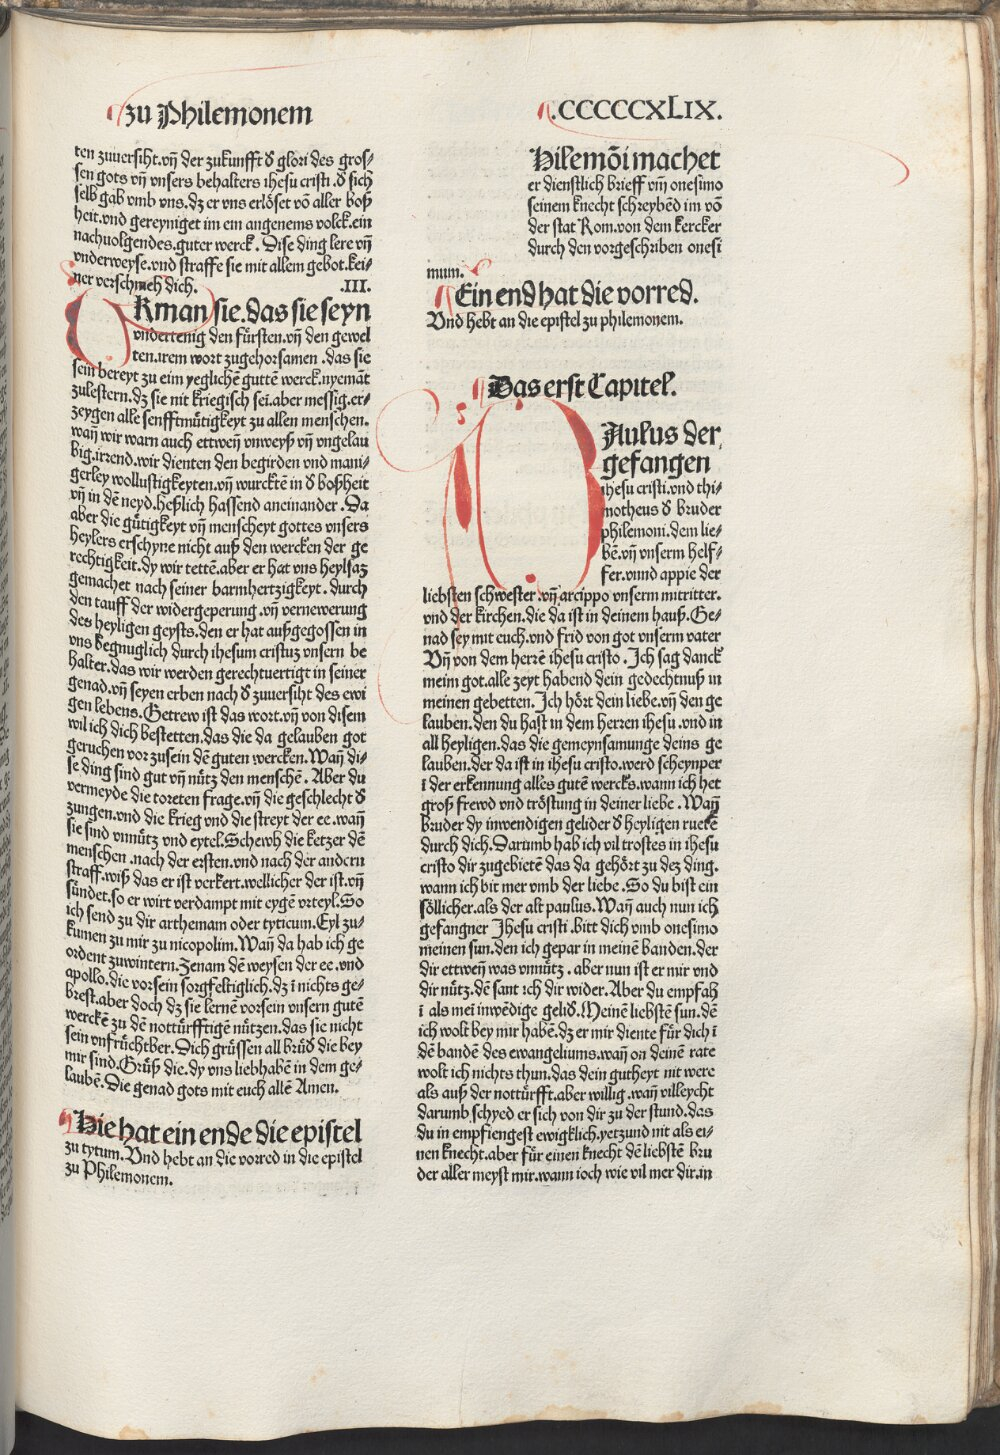 zu Philemonem
.CCCCCXLIX.
ten zuuersiht.vñ der zukunfft ð glori des gros⸗
sen gots vñ vnsers behalters ihesu cristi.ð sich
selb gab vmb vns.dz er vns erlöset võ aller boß
heit.vnd gereyniget im ein angenems volck.ein
nachuolgendes.guter werck. Dise ding lere vñ
vnderweyse.vnd straffe sie mit allem gebot.kei⸗
ner verschmeh dich. .III.
Rman sie.das sie seyn
vndertenig den fürsten.vñ den gewel
ten.irem wort zugehorsamen.das sie
sein bereyt zu eim yeglichē guttē werck.nyemāt
zulestern.dz sie nit kriegisch sei.aber messig.er⸗
zeygen alle senfftmütigkeyt zu allen menschen.
wañ wir warn auch ettweñ vnweyß vñ vngelau
big.irrend.wir dienten den begirden vnd mani⸗
gerley wollustigkeyten.vñ wurcktē in ð boßheit
vñ in dē neyd.heßlich hassend aneinander.Da
aber die gütigkeyt vñ menscheyt gottes vnsers
heylers erschyne nicht auß den wercken der ge
rechtigkeit.dy wir tettē.aber er hat vns heylsaz
gemachet nach seiner barmhertzigkeyt. durch
den tauff der widergeperung.vñ vernewerung
des heyligen geysts.den er hat außgegossen in
vns begnuglich durch ihesum cristuz vnsern be
halter.das wir werden gerechtuertigt in seiner
genad.vñ seyen erben nach ð zuuersiht des ewi
gen lebens.Getrew ist das wort.vñ von disem
wil ich dich bestetten.das die da gelauben got
geruchen vor zusein dē guten wercken.Wañ di⸗
se ding sind gut vñ nütz den menschē. Aber du
vermeyde die toreten frage.vñ die geschlecht ð
zungen.vnd die krieg vnd die streyt der ee.wañ
sie sind vnnütz vnd eytel.Schewh die ketzer dē
menschen.nach der ersten.vnd nach der andern
straff.wiß das er ist verkert.wellicher der ist.vñ
sündet.so er wirt verdampt mit eygē vrteyl.So
ich send zu dir arthemam oder tyticum.Eyl zu⸗
kumen zu mir zu nicopolim.Wañ da hab ich ge
ordent zuwintern.Zenam dē weysen der ee.vnd
apollo.die vorsein sorgfeltiglich.dz ī nichts ge⸗
brest.aber doch dz sie lernē vorsein vnsern gutē
werckē zu dē nottürfftigē nützen.das sie nicht
sein vnfrüchtber.Dich grüssen all brüð die bey
mir sind.Grüß die.dy vns liebhabē in dem ge⸗
laubē.Die genad gots mit euch allē Amen.
Hie hat ein ende die epistel
zu tytum.Vnd hebt an die vorred in die epistel
zu Philemonem.
Hilemõi machet
er dienstlich brieff vm̄ onesimo
seinem knecht schreybēd im võ
der stat Rom.von dem kercker
durch den vorgeschriben onesi
mum.
Ein end hat die vorred.
Vnd hebt an die epistel zu philemonem.
Das erst Capitel.
Aulus der
gefangen
ihesu cristi.vnd thi⸗
motheus ð bruder
philemoni.dem lie⸗
bē.vñ vnserm helf⸗
fer.vnnd appie der
liebsten schwester.vñ arcippo vnserm mitritter.
vnd der kirchen.die da ist in deinem hauß.Ge⸗
nad sey mit euch.vnd frid von got vnserm vater
Vñ von dem herrē ihesu cristo. Ich sag danck
meim got.alle zeyt habend dein gedechtnuß in
meinen gebetten.Ich hört dein liebe.vñ den ge
lauben.den du hast in dem herren ihesu.vnd in
all heyligen.das die gemeynsamunge deins ge
lauben.der da ist in ihesu cristo.werd scheynper
ī der erkennung alles gutē wercks.wann ich het
groß frewd vnd tröstung in deiner liebe. Wañ
bruder dy inwendigen gelider ð heyligen ruetē
durch dich.Darumb hab ich vil trostes in ihesu
cristo dir zugebietē das da gehört zu dez ding.
wann ich bit mer vmb der liebe.So du bist ein
söllicher.als der alt paulus.Wañ auch nun ich
gefangner Ihesu cristi.bitt dich vmb onesimo
meinen sun.den ich gepar in meinē banden.der
dir ettweñ was vnnütz. aber nun ist er mir vnd
dir nütz.dē sant ich dir wider.Aber du empfah
ī als mei inwēdige gelið.Meinē liebstē sun.dē
ich wolt bey mir habē.dz er mir diente für dich ī
dē bandē des ewangeliums.wañ on deinē rate
wolt ich nichts thun.das dein gutheyt nit were
als auß der nottürfft.aber willig.wañ villeycht
darumb schyed er sich von dir zu der stund.das
du in empfiengest ewigklich.yetzund nit als ei⸗
nen knecht.aber für einen knecht dē liebstē bru
der aller meyst mir.wann ioch wie vil mer dir.in